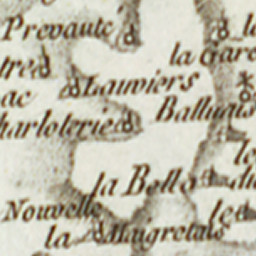 Prevauté
la Gare
Lauviers
ac
Balluais
harloterie
la Bello
Nouvelle
le
la Maigretais